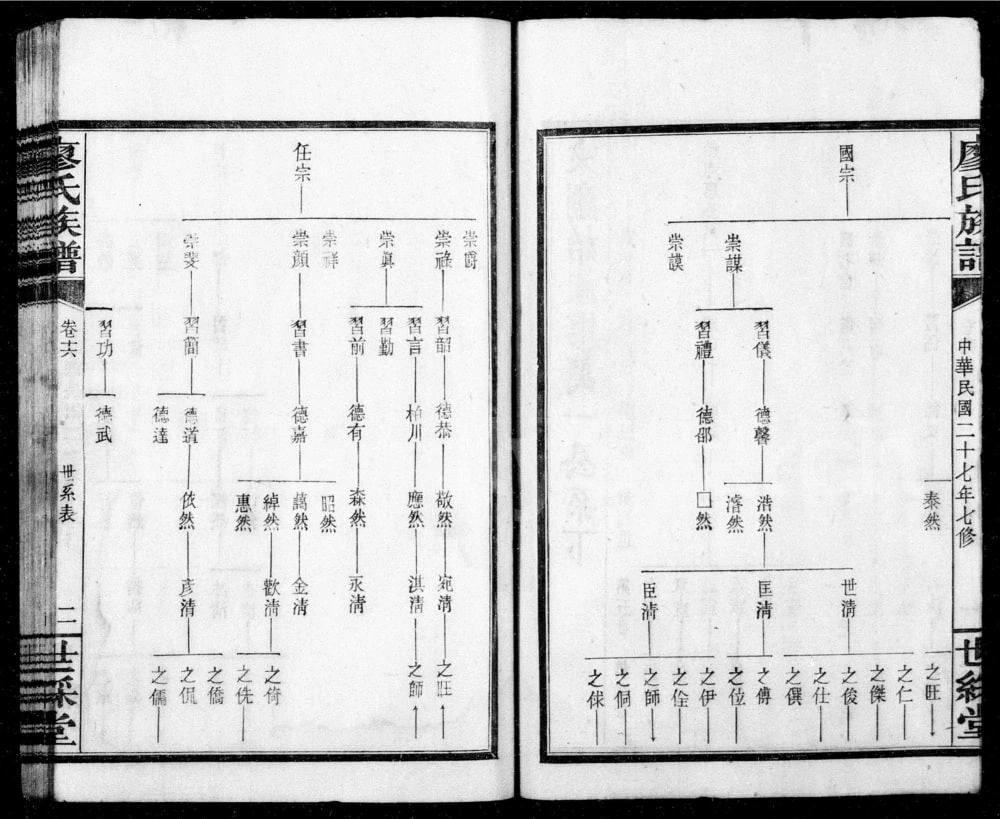 廖氏族譜
中華民國二十七年七修
一
世綵堂
國宗
崇謀
崇謨
習儀
習禮
德馨
德邵
泰然
浩然
濬然
□然
世清
匡清
臣清
之旺
之仁
之傑
之俊
之仕
之僎
之傅
之位
之伊
之佺
之師
之侗
之俅
任宗
崇爵
崇祿
崇真
崇祥
崇顔
崇斐
習韶
習言
習勤
習前
習書
習簡
習功
德恭
柏川
德有
德嘉
德道
德達
德武
敬然
應然
森然
昭然
藹然
綽然
惠然
依然
宛清
淇清
永清
金清
歡清
彥清
之旺
之師
之倚
之侁
之僑
之侃
之儒
廖氏族譜
卷之六
世系表
二
世綵堂